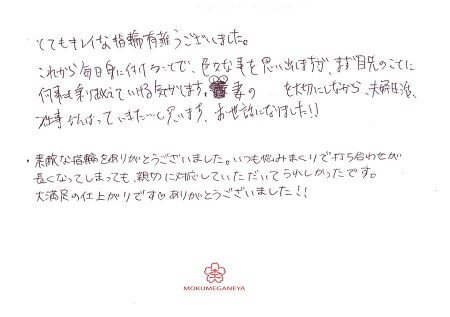 とてもキレイな指輪有難うございました。
これから毎日身に付けることで、色々な事を思い出しますが、まず目先のことに
何事も乗り越えていける気がします。妻の を大切にしながら、夫婦生活、
仕事がんばっていきたいと思います。お世話になりました!!
・素敵な指輪をありがとうございました。いつも悩みまくりで打ち合わせが
長くなってしまっても、親切に対応していただいてうれしかったです。
大満足の仕上がりです♡ありがとうございました!!
MOKUMEGANEYA